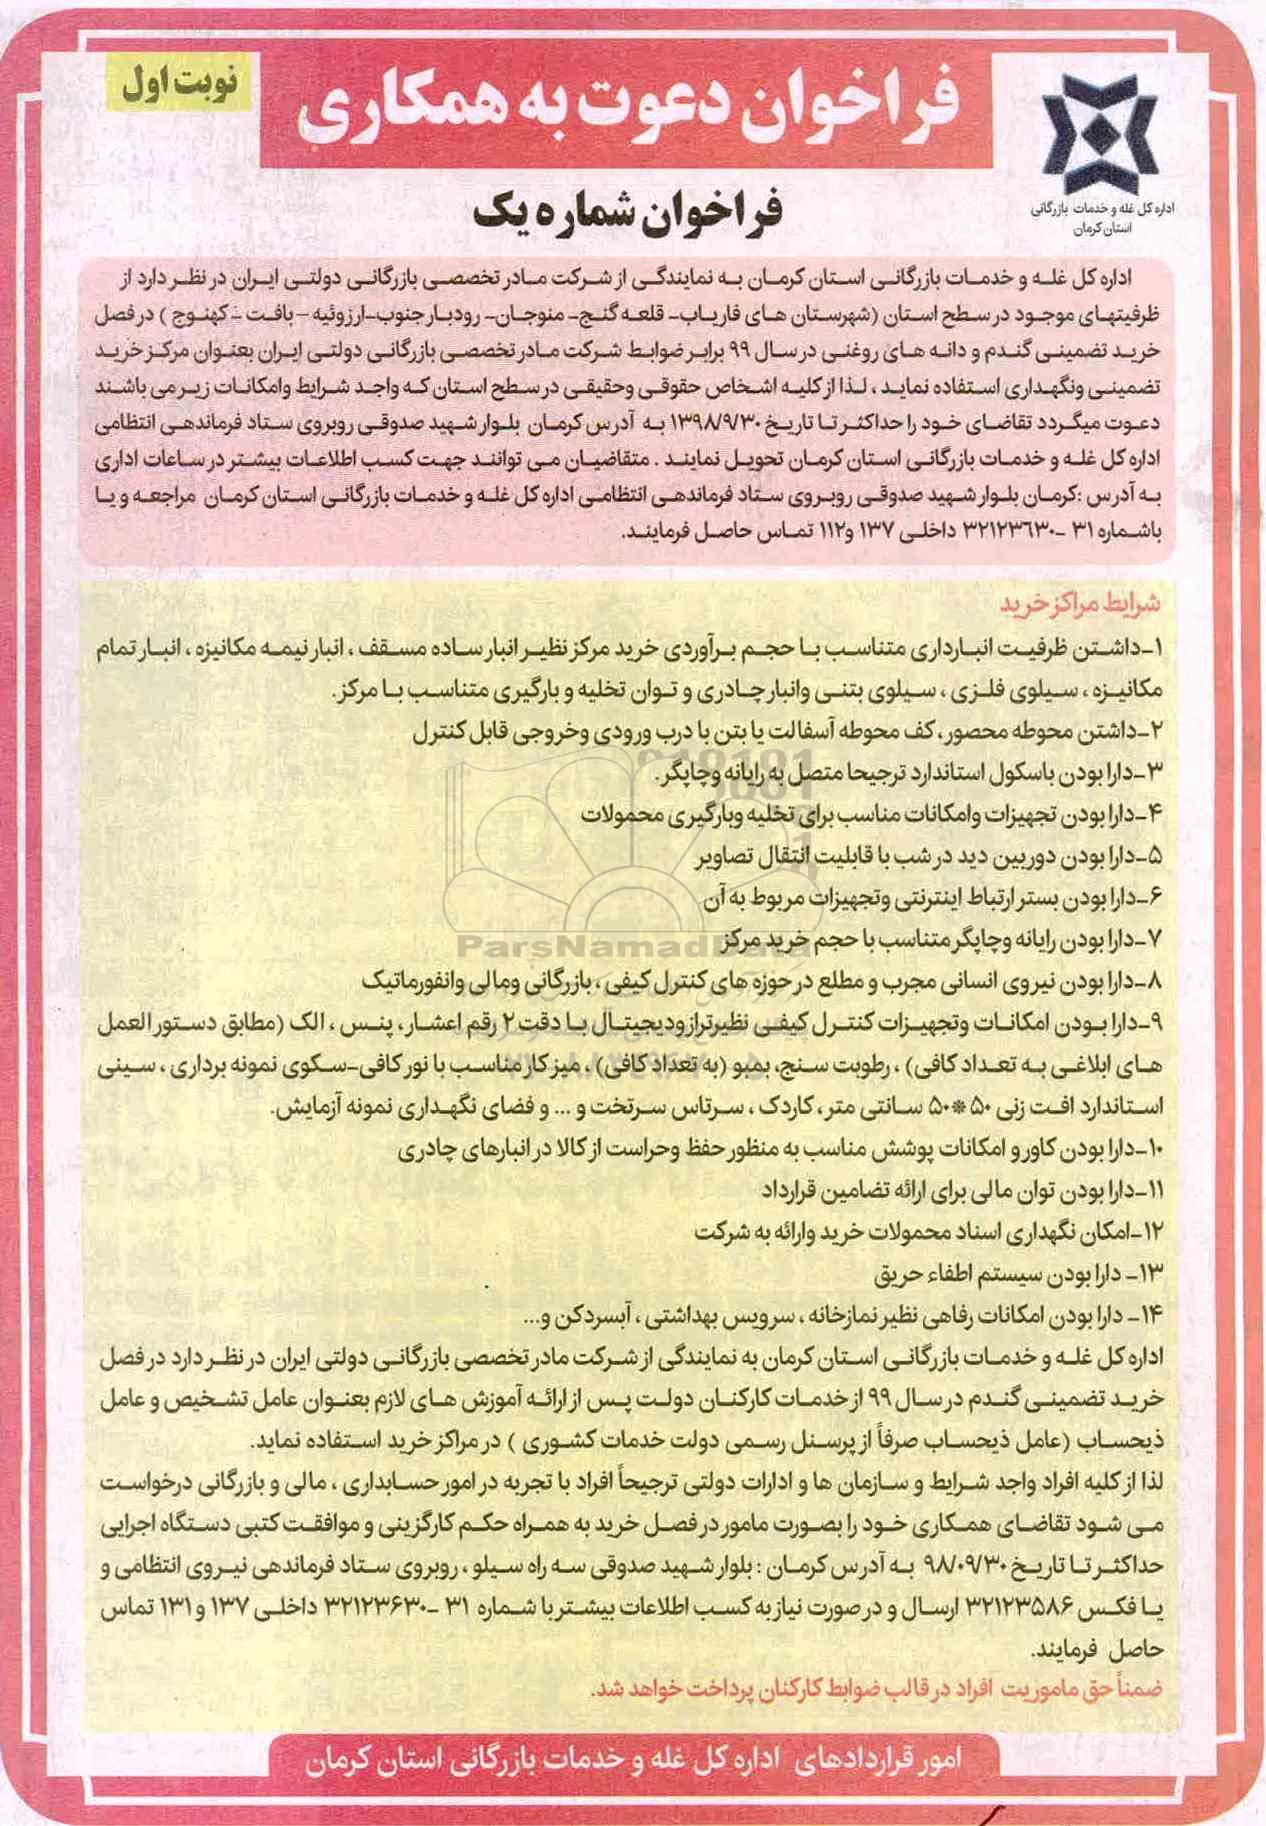 نوبت اول
فراخوان دعوت به همکاری
اداره کل غله و خدمات بازرگانی
استان کرمان
فراخوان شماره یک
اداره کل غله و خدمات بازرگانی استان کرمان به نمایندگی از شرکت مادر تخصصی بازرگانی دولتی ایران در نظر دارد از
ظرفیتهای موجود در سطح استان (شهرستان های فاریاب- قلعه گنج- منوجان- رودبار جنوب-ارزوئیه – بافت - کهنوج ) در فصل
خرید تضمینی گندم و دانه های روغنی در سال ۹۹ برابر ضوابط شرکت مادر تخصصی بازرگانی دولتی ایران بعنوان مرکز خرید
تضمینی ونگهداری استفاده نماید ، لذا از کلیه اشخاص حقوقی وحقیقی در سطح استان که واجد شرایط وامکانات زیر می باشند
دعوت میگردد تقاضای خود را حداکثر تا تاریخ ۱۳۹۸/۹/۳۰ به آدرس کرمان بلوار شهید صدوقی روبروی ستاد فرماندهی انتظامی
اداره کل غله و خدمات بازرگانی استان کرمان تحویل نمایند . متقاضیان می توانند جهت کسب اطلاعات بیشتر در ساعات اداری
به آدرس :کرمان بلوار شهید صدوقی روبروی ستاد فرماندهی انتظامی اداره کل غله و خدمات بازرگانی استان کرمان مراجعه و یا
باشماره ۳۱ -۳۲۱۲۳۶۳۰ داخلی ۱۳۷ و۱۱۲ تماس حاصل فرمایند.
شرایط مراکز خرید
۱-داشتن ظرفیت انبارداری متناسب با حجم برآوردی خرید مرکز نظیر انبار ساده مسقف ، انبار نیمه مکانیزه ، انبار تمام
مکانیزه ، سیلوی فلزی ، سیلوی بتنی وانبار چادری و توان تخلیه و بارگیری متناسب با مرکز.
۲-داشتن محوطه محصور، کف محوطه آسفالت یا بتن با درب ورودی وخروجی قابل کنترل
۳-دارا بودن باسکول استاندارد ترجیحا متصل به رایانه وچاپگر.
۴-دارا بودن تجهیزات وامکانات مناسب برای تخلیه وبارگیری محمولات
۵-دارا بودن دوربین دید در شب با قابلیت انتقال تصاویر
۶-دارا بودن بستر ارتباط اینترنتی وتجهیزات مربوط به آن
۷-دارا بودن رایانه وچاپگر متناسب با حجم خرید مرکز
ParsNamadData
۸-دارا بودن نیروی انسانی مجرب و مطلع در حوزه های کنترل کیفی ، بازرگانی ومالی وانفورماتیک
۹-دارا بودن امکانات وتجهیزات کنترل کیفی نظیرترازودیجیتال با دقت ۲ رقم اعشار ، پنس ، الک (مطابق دستور العمل
های ابلاغی به تعداد کافی) ، رطوبت سنج، بمبو (به تعداد کافی) ، میز کار مناسب با نور کافی-سکوی نمونه برداری ، سینی
استاندارد افت زنی ۵۰ * ۵۰ سانتی متر ، کاردک ، سرتاس سرتخت و ... و فضای نگهداری نمونه آزمایش.
۱۰-دارا بودن کاور و امکانات پوشش مناسب به منظور حفظ وحراست از کالا در انبارهای چادری
۱۱-دارا بودن توان مالی برای ارائه تضامین قرارداد
۱۲-امکان نگهداری اسناد محمولات خرید وارائه به شرکت
۱۳- دارا بودن سیستم اطفاء حریق
۱۴- دارا بودن امکانات رفاهی نظیر نمازخانه ، سرویس بهداشتی ، آبسردکن و...
اداره کل غله و خدمات بازرگانی استان کرمان به نمایندگی از شرکت مادر تخصصی بازرگانی دولتی ایران در نظر دارد در فصل
خرید تضمینی گندم در سال ۹۹ از خدمات کارکنان دولت پس از ارائه آموزش های لازم بعنوان عامل تشخیص و عامل
ذیحساب (عامل ذیحساب صرفاً از پرسنل رسمی دولت خدمات کشوری ) در مراکز خرید استفاده نماید.
لذا از کلیه افراد واجد شرایط و سازمان ها و ادارات دولتی ترجیحاً افراد با تجربه در امور حسابداری ، مالی و بازرگانی درخواست
می شود تقاضای همکاری خود را بصورت مامور در فصل خرید به همراه حکم کارگزینی و موافقت کتبی دستگاه اجرایی
حداکثر تا تاریخ ۹۸/۰۹/۳۰ به آدرس کرمان : بلوار شهید صدوقی سه راه سیلو ، روبروی ستاد فرماندهی نیروی انتظامی و
یا فکس ۳۲۱۲۳۵۸۶ ارسال و در صورت نیاز به کسب اطلاعات بیشتر با شماره ۳۱ -۳۲۱۲۳۶۳۰ داخلی ۱۳۷ و ۱۳۱ تماس
حاصل فرمایند.
ضمناً حق ماموریت افراد در قالب ضوابط کارکنان پرداخت خواهد شد.
امور قراردادهای اداره کل غله و خدمات بازرگانی استان کرمان